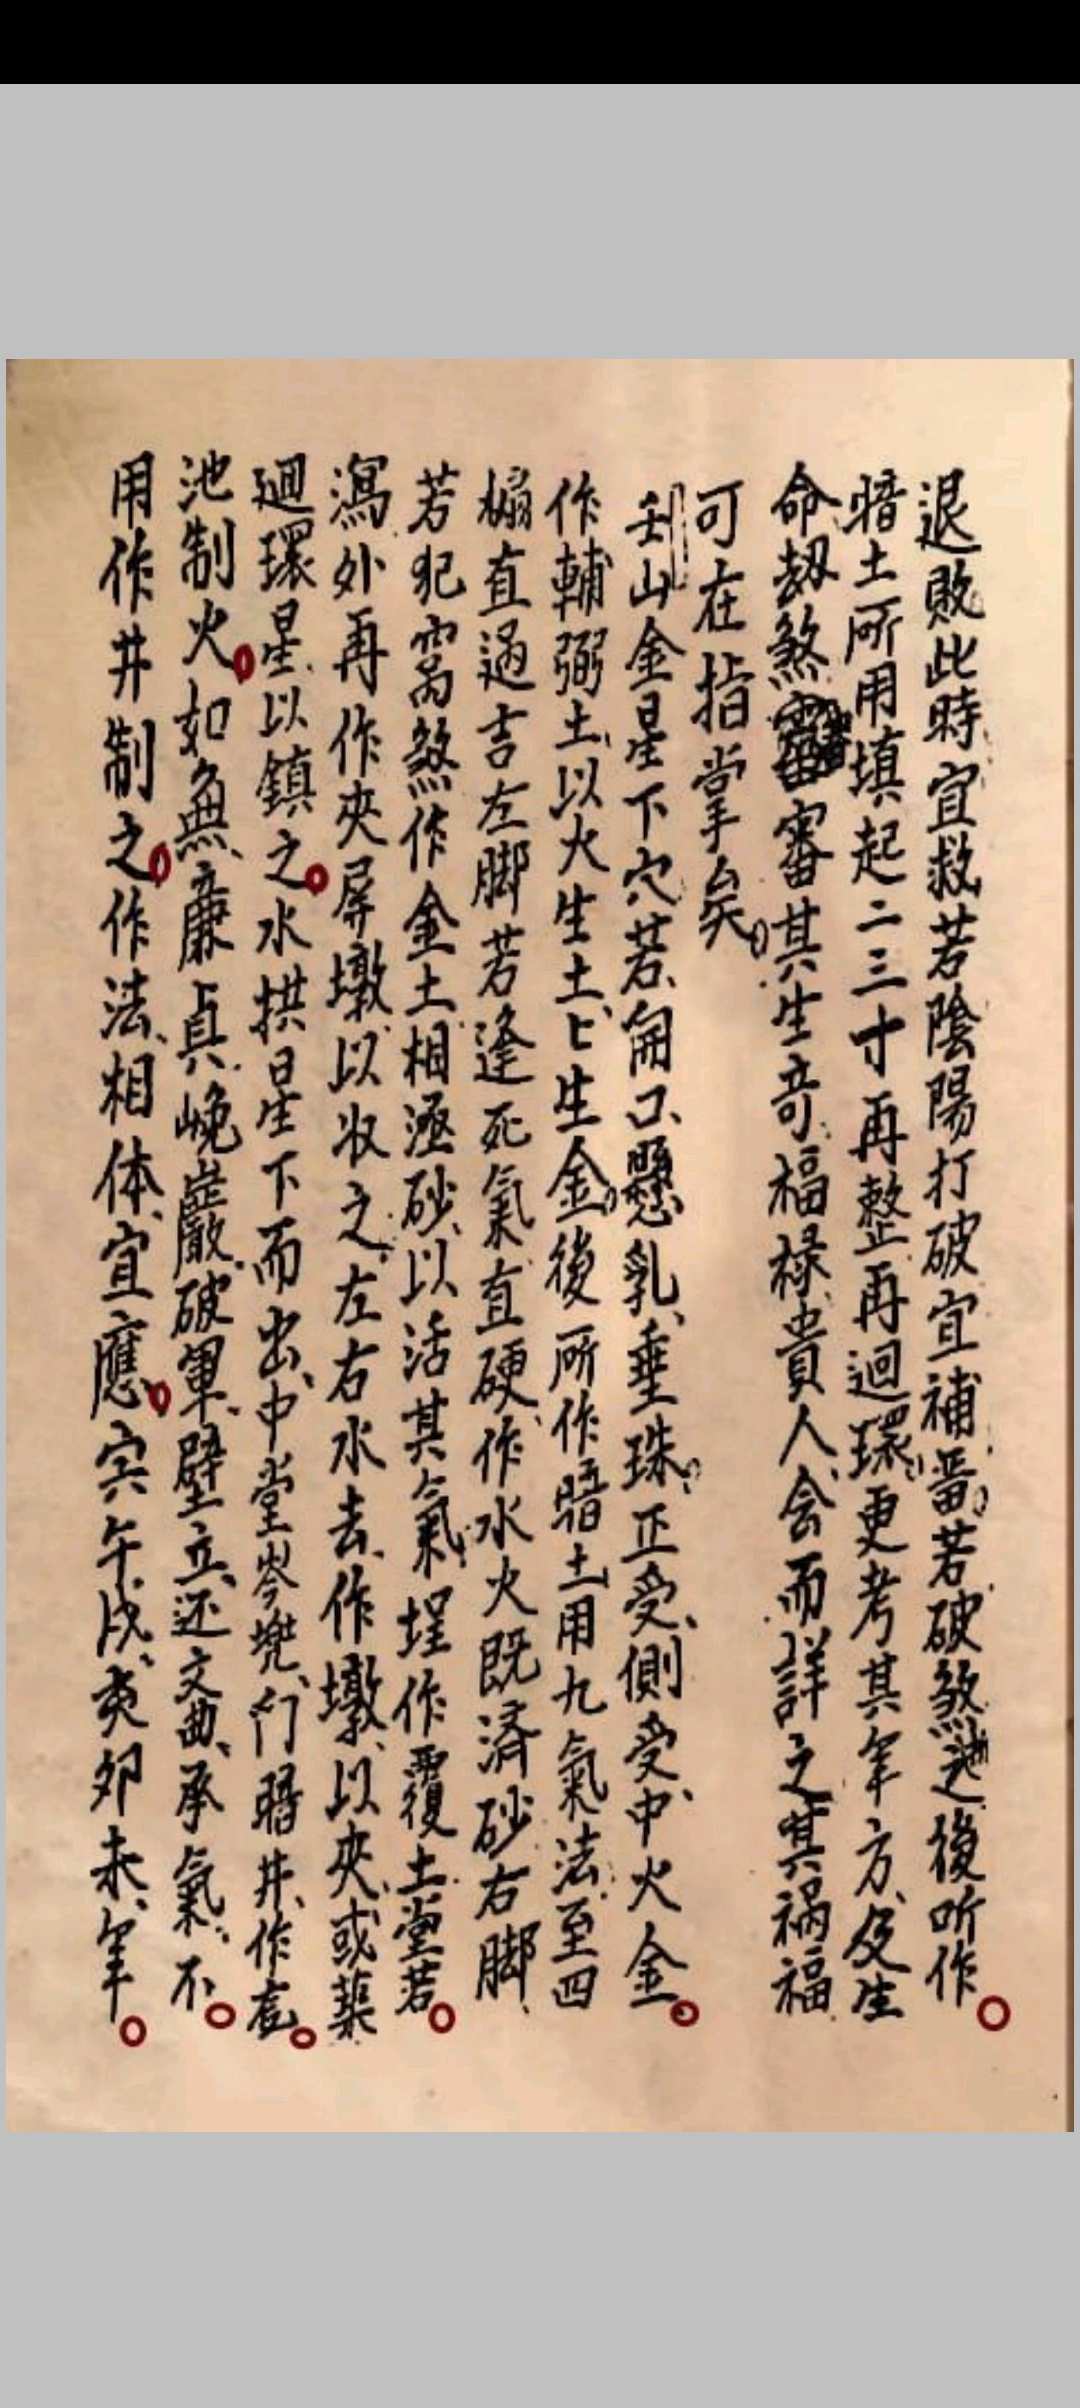 退敗此時宜救若陰陽打破宜補啬若破煞迯後所作
暗土所用填起二三寸再整再迴環更考其年方及生
命劫煞審其生奇福祿貴人会而詳之其祸福
可在指掌矣
壬山金星下穴若開口懸乳垂珠正受側受中火金
作輔弼土以火生土匕生金後所作暗土用九氣法至四
直過吉左脚若逢死氣直硬作水火既済砂右脚
若犯窩煞作金土相逐砂以活其氣埕作覆土堂若
瀉外再作夾屏墩以收之左右水去作墩以夾或築
迴環星以鎮之水拱星下而出中堂岺兠门暗井作
池制火如無廉貞巉巖破軍壁立还文曲承氣不
用作井制之作法相体宜應寅午戌亥卯未年